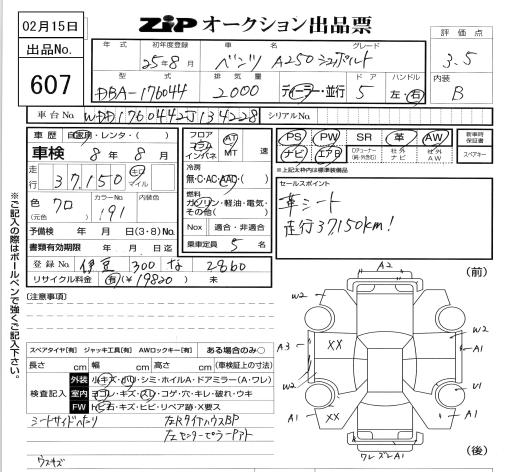 02月15日
ZIP オークション出品票
出品No.
607
評価点
3.5
内装
B
年式 初年度登録 車名 グレード
25年8月 ベンツ A250 シュポルト
型式 排気量 ドア ハンドル
DBA-176044 2000 ディーラー・並行 5 左・右
車台No. WDD1760442J134228 シリアルNo.
車歴 自家用・レンタ・( )
車検 8年8月
走行 37,150 km マイル
色 クロ (元色)
カラーNo. 191
内装色
予備検 年 月 日(3・8)No.
書類有効期限 年 月 日迄
登録No. 伊豆 300 な 2860
リサイクル料金 有(¥19820) 未
フロア
インパネ
AT
MT 速
冷房
無・C・AC・AAC( )
燃料
ガソリン・軽油・電気・
その他( )
Nox 適合・非適合
乗車定員 5 名
PS PW SR 革 AW
ナビ エアB 社外ナビ 社外AW
新車時保証書
スペアキー
*上記太枠内は標準装備品
セールスポイント
革シート
走行37,150km!
※ご記入の際はボールペンで強くご記入下さい。
[注意事項]
スペアタイヤ[有] ジャッキ工具[有] AWロックキー[有] ある場合のみ○
長さ cm 幅 cm 高さ cm (車検証上の寸法)
検査記入
外装 小キズ・凹・シミ・ホイルA・ドアミラー(A・ワレ)
室内 ヨゴレ・キズ・スレ・コゲ・穴・キレ・破れ・ウキ
FW トビ石・キズ・ヒビ・リペア跡・X要ス
シートサイドヘタリ
左RタイヤハウスBP
左センターピラーアト
(前)
A2
W2
W2
A3
XX
A1
W2
U1
A1
XX
A1
(後)